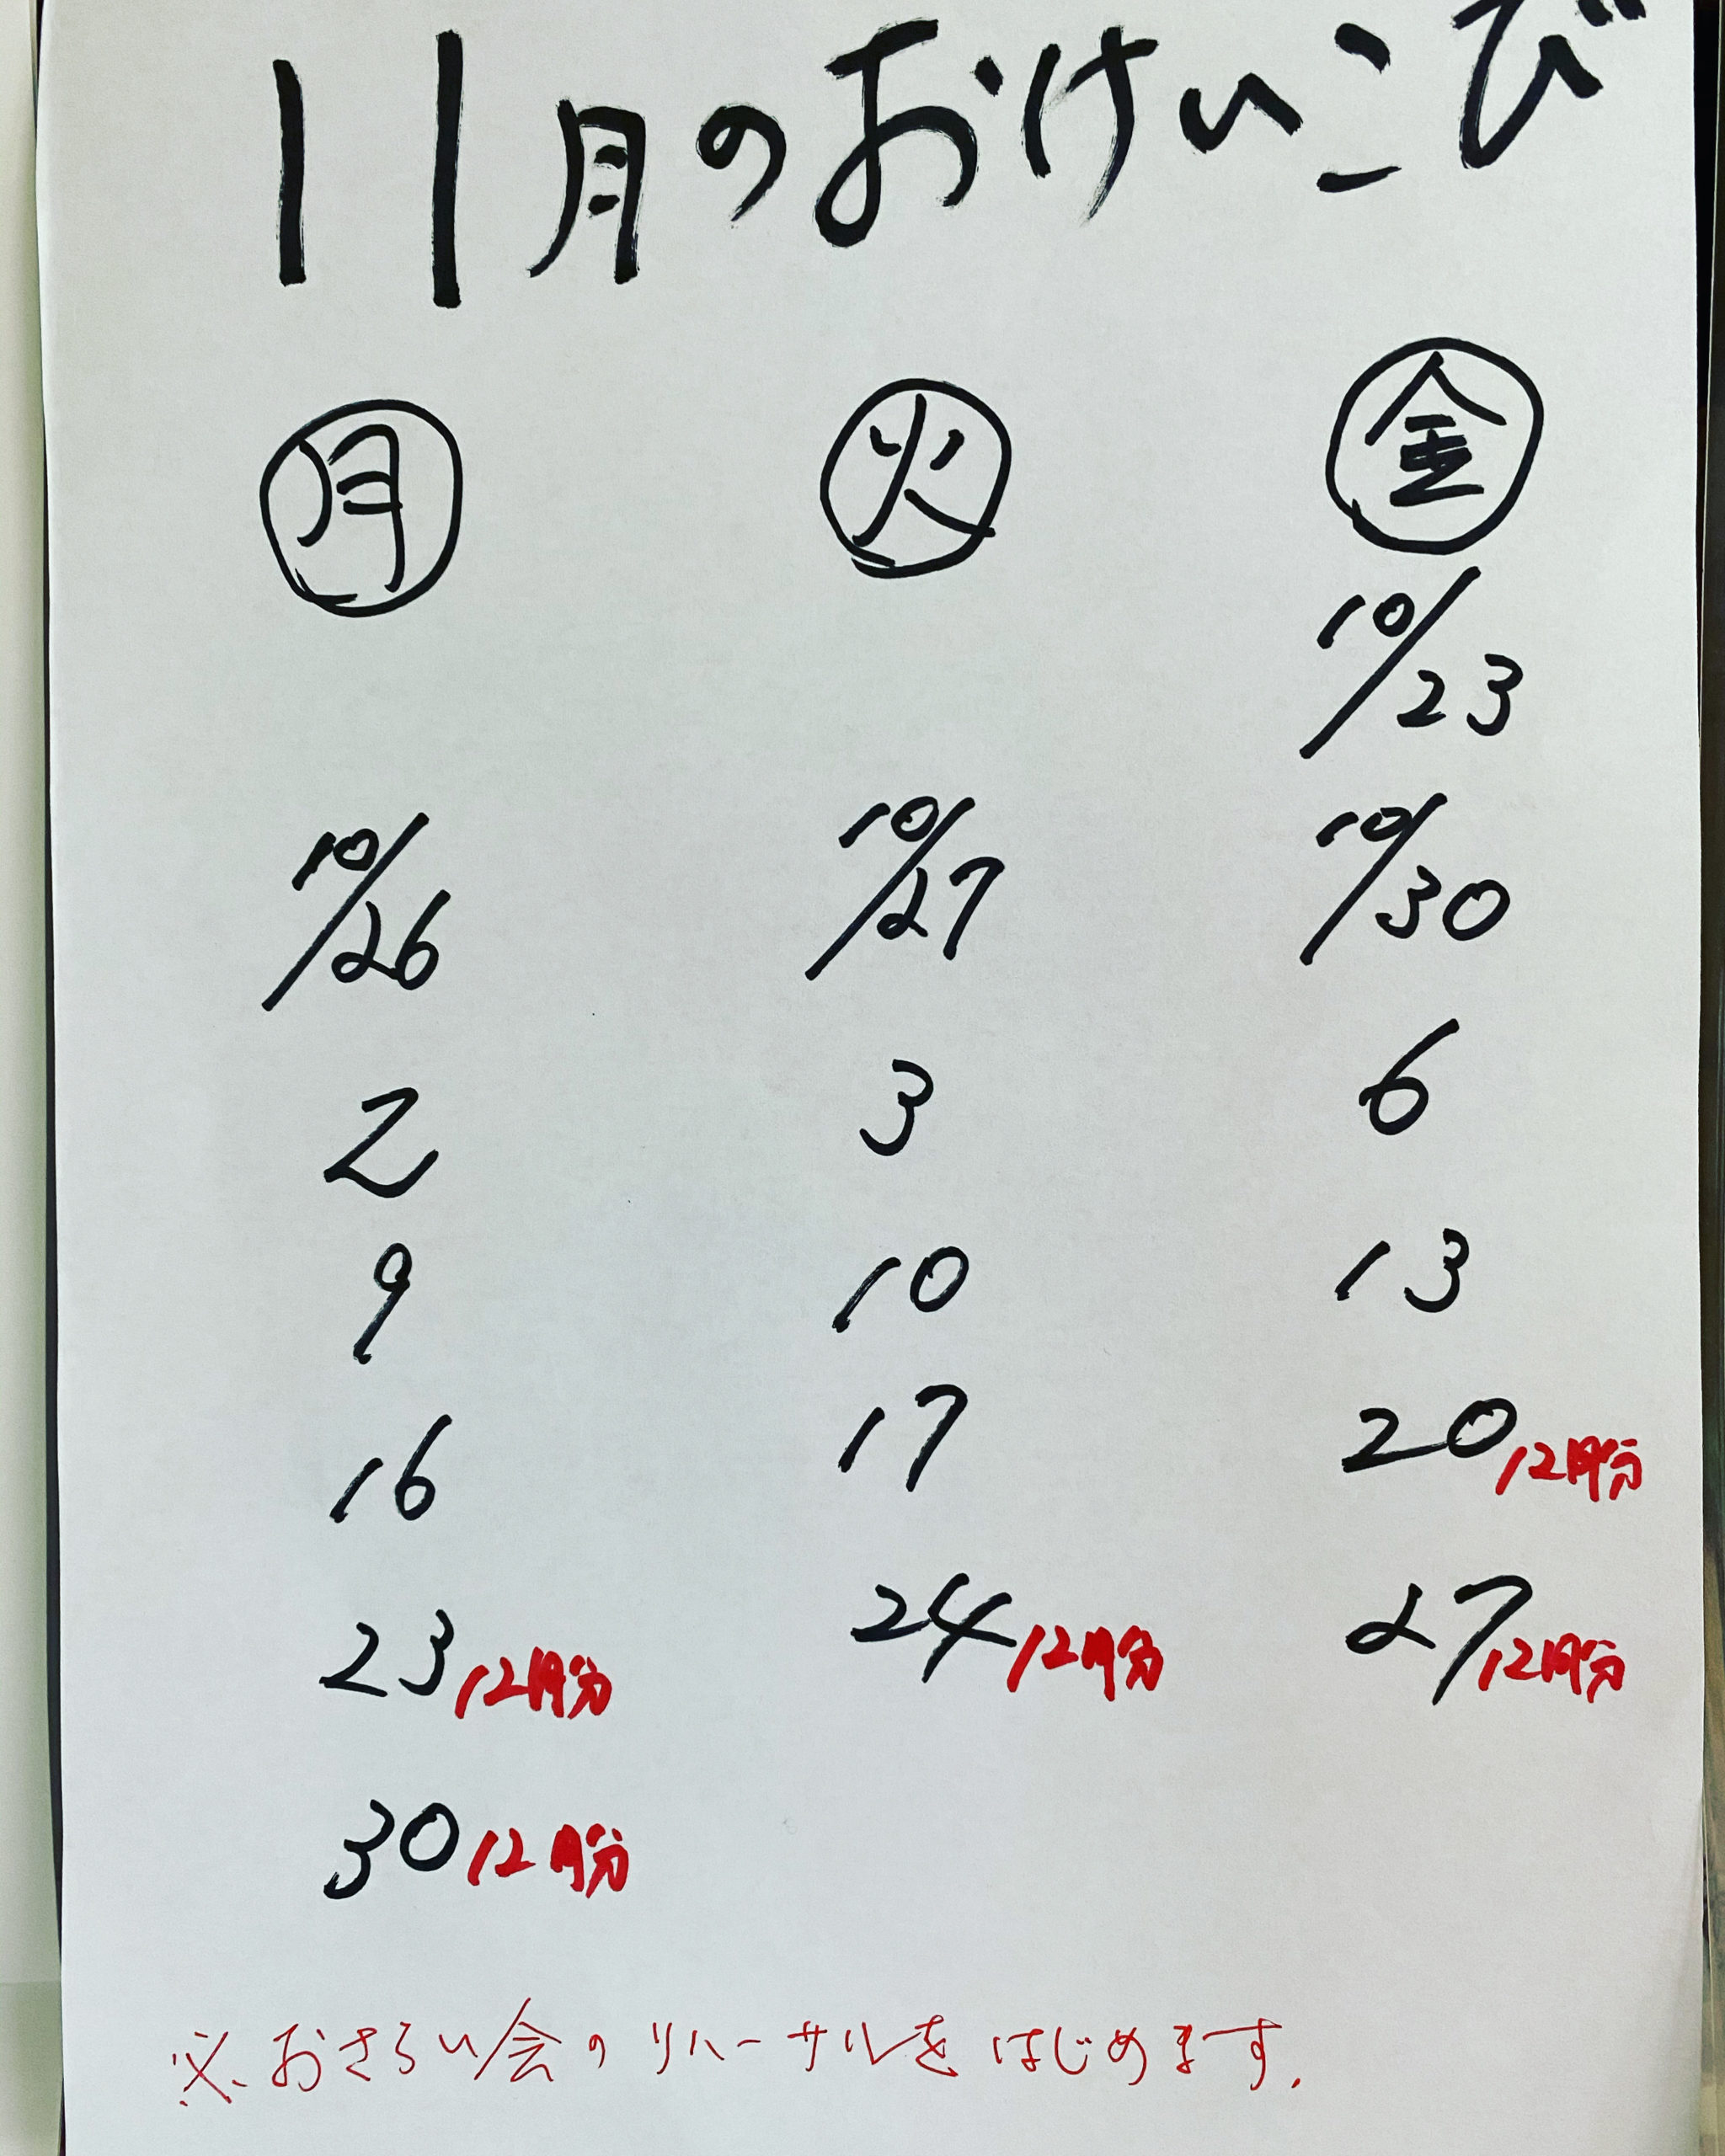 11月のおけいこび
月 火 金
10/23
10/26 10/27 10/30
2 3 6
9 10 13
16 17 20 12月分
23 12月分 24 12月分 27 12月分
30 12月分
※おさらい会のリハーサルをはじめます.